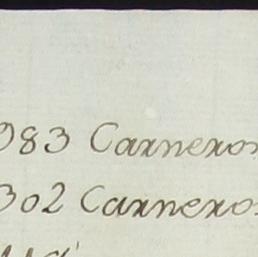 983 Carneros
302 Carneros